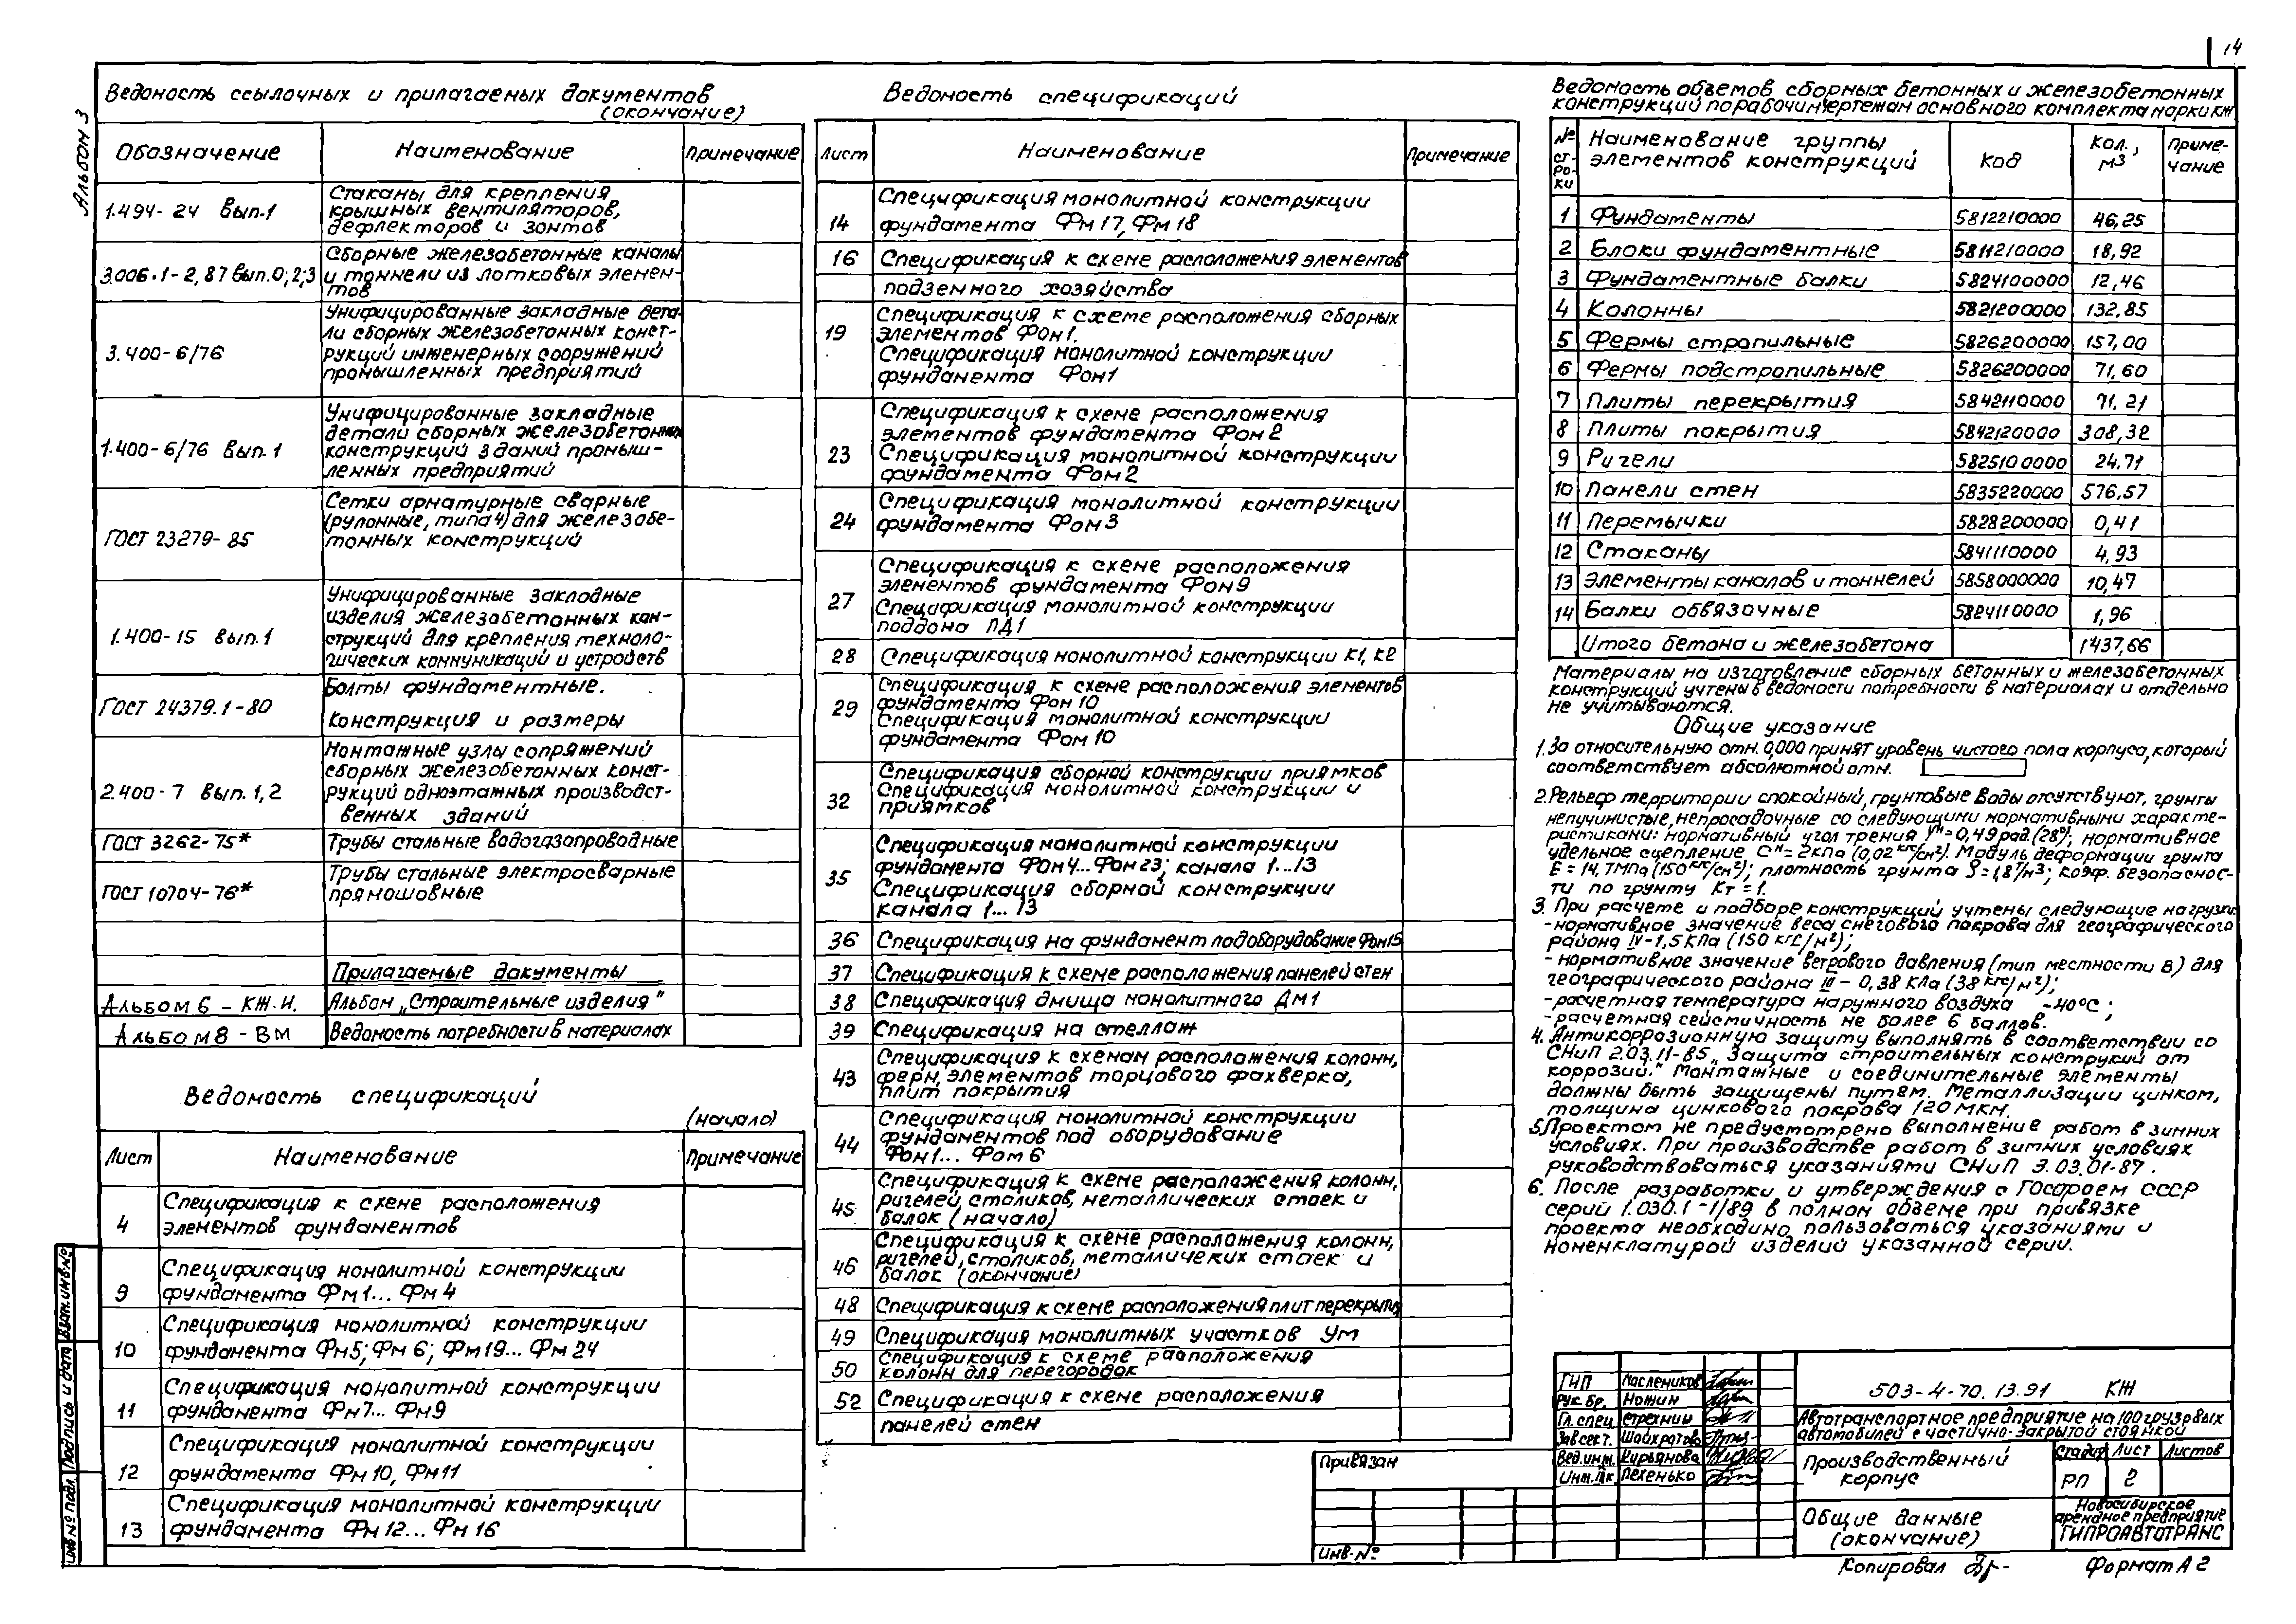 14
Альбом 3
Ведомость ссылочных и прилагаемых документов
(окончание)
Обозначение Наименование Примечание
1.494-24 Вып.1
Стаканы для крепления
крышных вентиляторов,
дефлекторов и зонтов
3.006.1-2,87 Вып.0;2;3
Сборные железобетонные каналы
и тоннели из лотковых элемен-
тов
3.400-6/76
Унифицированные закладные дета-
ли сборных железобетонных конст-
рукций инженерных сооружений
промышленных предприятий
1.400-6/76 Вып.1
Унифицированные закладные
детали сборных железобетонных
конструкций зданий промыш-
ленных предприятий
ГОСТ 23279-85
Сетки арматурные сварные
(рулонные, типа 4) для железобе-
тонных конструкций
1.400-15 Вып.1
Унифицированные закладные
изделия железобетонных кон-
струкций для крепления техноло-
гических коммуникаций и устройств
ГОСТ 24379.1-80
Болты фундаментные.
Конструкция и размеры
2.400-7 Вып.1,2
Монтажные узлы сопряжений
сборных железобетонных конст-
рукций одноэтажных производст-
венных зданий
ГОСТ 3262-75* Трубы стальные водогазопроводные
ГОСТ 10704-76*
Трубы стальные электросварные
прямошовные
Прилагаемые документы
Альбом 6 - КЖ.И. Альбом „Строительные изделия"
Альбом 8 - ВМ Ведомость потребности в материалах
Ведомость спецификаций
(начало)
Лист Наименование Примечание
4
Спецификация к схеме расположения
элементов фундаментов
9
Спецификация монолитной конструкции
фундамента Фм1...Фм4
10
Спецификация монолитной конструкции
фундамента Фм5; Фм6; Фм19...Фм24
11
Спецификация монолитной конструкции
фундамента Фм7...Фм9
12
Спецификация монолитной конструкции
фундамента Фм10, Фм11
13
Спецификация монолитной конструкции
фундамента Фм12...Фм16
Ведомость спецификаций
Лист Наименование Примечание
14
Спецификация монолитной конструкции
фундамента Фм17, Фм18
16 Спецификация к схеме расположения элементов
подземного хозяйства
19
Спецификация к схеме расположения сборных
элементов Фом1.
Спецификация монолитной конструкции
фундамента Фом1
23
Спецификация к схеме расположения
элементов фундамента Фом2
Спецификация монолитной конструкции
фундамента Фом2
24
Спецификация монолитной конструкции
фундамента Фом3
27
Спецификация к схеме расположения
элементов фундамента Фом9
Спецификация монолитной конструкции
поддона ПД1
28 Спецификация монолитной конструкции К1, К2
29
Спецификация к схеме расположения элементов
фундамента Фом10
Спецификация монолитной конструкции
фундамента Фом10
32
Спецификация сборной конструкции приямков
Спецификация монолитной конструкции и
приямков
35
Спецификация монолитной конструкции
фундамента Фом4...Фом23; канала 1...13
Спецификация сборной конструкции
канала 1...13
36 Спецификация на фундамент подоборудование Фом15
37 Спецификация к схеме расположения панелей стен
38 Спецификация днища монолитного Дм1
39 Спецификация на стеллаж
43
Спецификация к схемам расположения колонн,
ферм, элементов торцового фахверка,
плит покрытия
44
Спецификация монолитной конструкции
фундаментов под оборудование
Фом1...Фом6
45
Спецификация к схеме расположения колонн,
ригелей, столиков, металлических стоек и
балок (начало)
46
Спецификация к схеме расположения колонн,
ригелей, столиков, металличеких стоек и
балок (окончание)
48 Спецификация к схеме расположения плит перекрытия
49 Спецификация монолитных участков Ум
50
Спецификация к схеме расположения
колонн для перегородок
52 Спецификация к схеме расположения
панелей стен
Ведомость объемов сборных бетонных и железобетонных
конструкций по рабочим чертежам основного комплекта марки КЖ
№ ст-ро-ки Наименование группы элементов конструкций Код Кол., м³ Приме-чание
1 Фундаменты 5812210000 46,25
2 Блоки фундаментные 5811210000 18,92
3 Фундаментные балки 5824100000 12,46
4 Колонны 5821200000 132,85
5 Фермы стропильные 5826200000 157,00
6 Фермы подстропильные 5826200000 71,60
7 Плиты перекрытия 5842110000 71,21
8 Плиты покрытия 5842120000 308,32
9 Ригели 5825100000 24,71
10 Панели стен 5835220000 576,57
11 Перемычки 5828200000 0,41
12 Стаканы 5841110000 4,93
13 Элементы каналов и тоннелей 5858000000 10,47
14 Балки обвязочные 5824110000 1,96
Итого бетона и железобетона 1437,66
Материалы на изготовление сборных бетонных и железобетонных
конструкций учтены в ведомости потребности в материалах и отдельно
не учитываются.
Общие указание
1. За относительную отм. 0,000 принят уровень чистого пола корпуса, который
соответствует абсолютной отм.
2. Рельеф территории спокойный, грунтовые воды отсутствуют, грунты
непучинистые, непросадочные со следующими нормативными характе-
ристиками: нормативный угол трения φн=0,49 рад.(28°); нормативное
удельное сцепление Сн=2кПа (0,02 кгс/см²). Модуль деформации грунта
Е=14,7МПа (150 кгс/см²); плотность грунта ρ=1,8т/м³; коэф. безопаснос-
ти по грунту Кт=1.
3. При расчете и подборе конструкций учтены следующие нагрузки:
- нормативное значение веса снегового покрова для географического
района IV-1,5КПа (150 кгс/м²);
- нормативное значение ветрового давления (тип местности В) для
географического района III - 0,38 КПа (38 кгс/м²);
- расчетная температура наружного воздуха -40°С;
- расчетная сейсмичность не более 6 баллов.
4. Антикоррозионную защиту выполнять в соответствии со
СНиП 2.03.11-85 „Защита строительных конструкций от
коррозии." Монтажные и соединительные элементы
должны быть защищены путем. Металлизации цинком,
толщина цинкового покрова 120 мкм.
5. Проектом не предусмотрено выполнение работ в зимних
условиях. При производстве работ в зимних условиях
руководствоваться указаниями СНиП 3.03.01-87.
6. После разработки и утверждения с Госстроем СССР
серий 1.030.1-1/89 в полном объеме при привязке
проекта необходимо пользоваться указаниями и
номенклатурой изделий указанной серии.
ГИП Маслеников
Рук.бр. Номин
Гл.спец Стрехнин
Зав.сект. Шайхратова
Вед.инж. Курьянова
Инж.IIк. Пехенько
503-4-70.13.91 КЖ
Автотранспортное предприятие на 100 грузовых
автомобилей с частично-закрытой стоянкой
Производственный
корпус
Стадия Лист Листов
РП 2
Общие данные
(окончание)
Новосибирское
арендное предприятие
ГИПРОАВТОТРАНС
Привязан
Инв.№
Копировал
Формат А2
Инв.№ подл. Подпись и дата Взам.инв.№